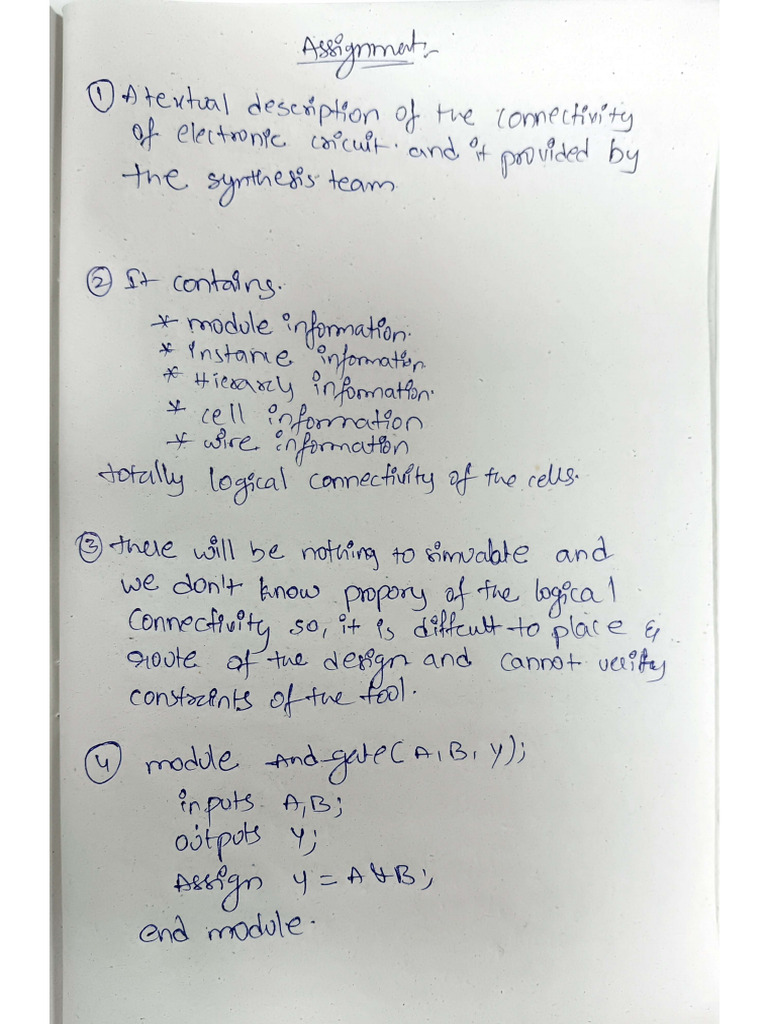 Assignment:-
① A textual description of the connectivity
of electronic cricuit. and it provided by
the synthesis team
② It contains.
* module information.
* instance information
* Hierarcly information.
* cell information
* wire information
totally logical connectivity of the cells.
③ there will be nothing to simualate and
we don't know propory of the logical
connectivity so, it is diffcult to place &
route of the design and cannot verify
constraints of the tool.
④ module And-gate(A, B, Y);
inputs A,B;
outputs Y;
Assign Y = A & B;
end module.